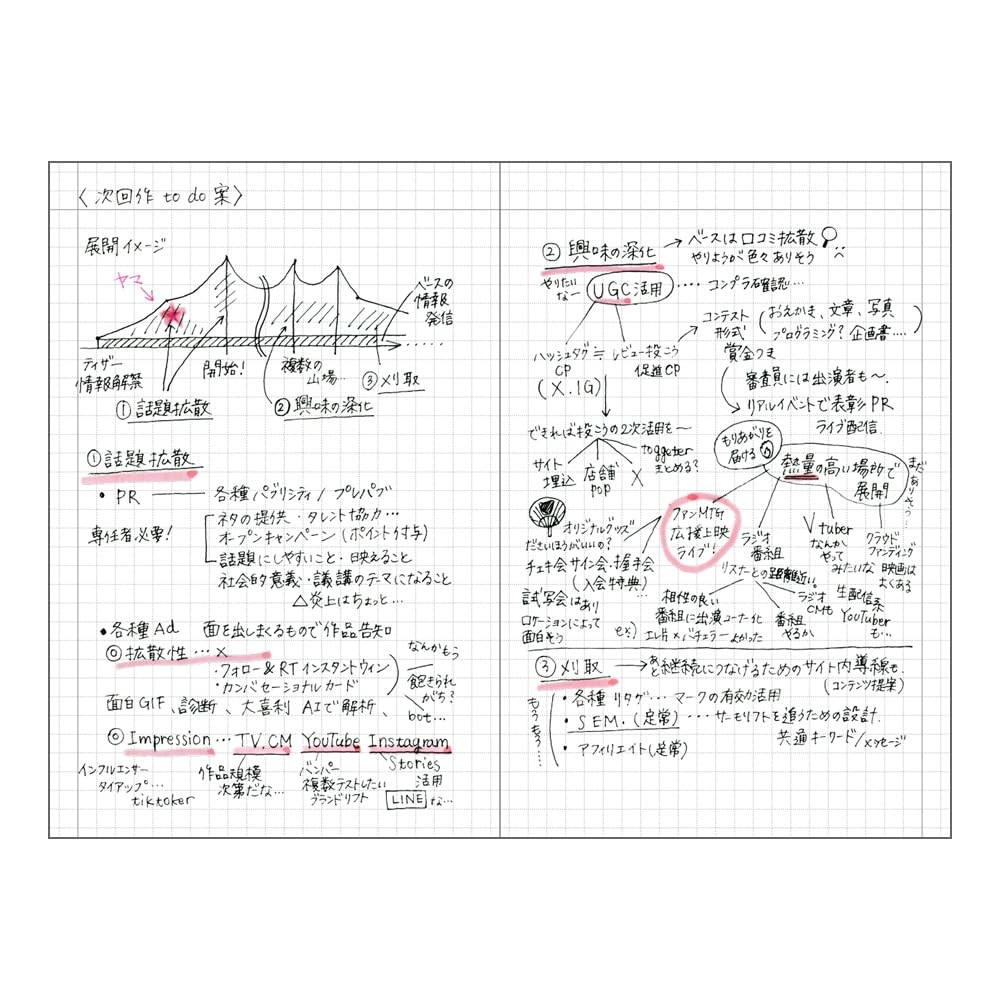 〈次回作 to do 案〉
展開イメージ
ヤマ
ベースの
情報
発信
ティザー
情報解禁
開始!
複数の
山場…
③刈取
①話題拡散
②興味の深化
①話題拡散
・PR 各種パブリシティ/プレパブ
専任者必要!
ネタの提供・タレント協力…
オープンキャンペーン(ポイント付与)
話題にしやすいこと・映えること
社会的意義・議講のテーマになること
△炎上はちょっと…
・各種Ad 面を出しまくるもので作品告知
◎拡散性…X
・フォロー&RTインスタントウィン
・カンバセーショナルカード
なんかもう
飽きられ
がち?
面白GIF、診断、大喜利 AIで解析、
bot…
◎Impression…TV.CM YouTube Instagram
インフルエンサー
タイアップ…
tiktoker
作品規模
次第だな…
バンパー
複数テストしたい
ブランドリフト
Stories
活用
LINE な…
②興味の深化
→ベースは口コミ拡散
やりようが色々ありそう
やりたい
なー
UGC活用 ‥‥コンプラ確認…
ハッシュタグ
CP
(X.IG)
≒
レビュー投こう
促進CP
コンテスト
形式
(おえかき、文章、写真
プログラミング?企画書‥‥)
賞金つき
審査員には出演者も〜.
→リアルイベントで表彰PR
ライブ配信
できれば投こうの2次活用を〜
サイト
埋込
店舗
POP
X
toggeter
まとめる?
もりあがりを
届ける
熱量の高い場所で
展開
まだありそう…
オリジナルグッズ
だせいほうがいいの?
チェキ会サイン会・握手会
(入会特典)
試写会はあり
ロケーションによって
面白そう
ファンMTG
応援上映
ライブ!
ラジオ
番組
リスナーとの距離近い。
Vtuber
なんか
やって
みたいな
クラウド
ファンディング
映画は
よくある
相性の良い
番組に出演コーナー化
ex) エレ片×バチェラーよかった
ラジオ
CMも
番組
やるか
生配信系
YouTuber
も…
③刈取 →あと継続につなげるためのサイト内導線も.
(コンテンツ提案)
もうもう…
・各種リタゲ…マークの有効活用
・SEM.(定常)…サーモリフトを追うための設計.
共通キーワード/メッセージ
・アフィリエイト(定常)